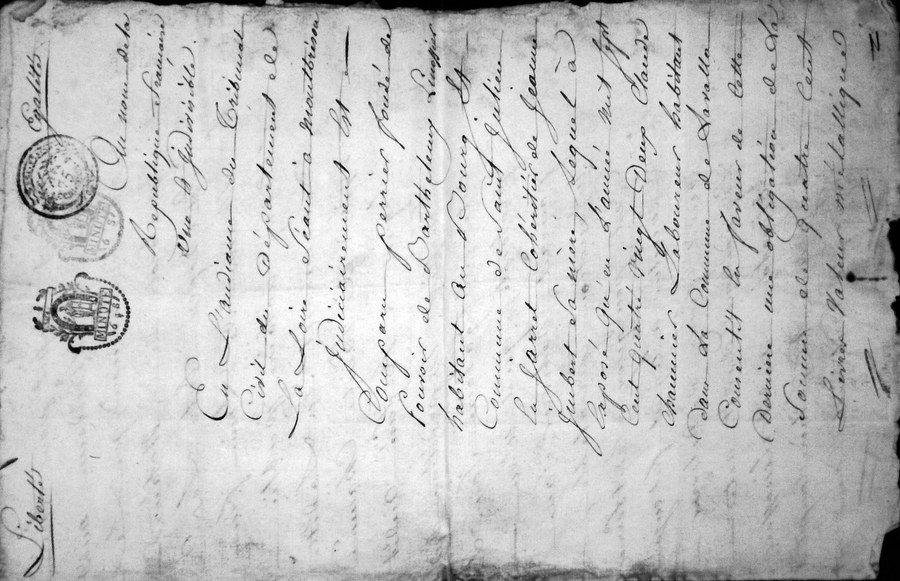 Liberté Egalité
Au nom de la
Republique francaise
une et Indivisible.
En L'audiance du Tribunal
Civil du Département de
La Loire Seant a montbrison
Judiciairement Est
Comparu perrier fondé de
Pouvoir de Barthelemy
habitant au Bourg St
Commune de Saint Julien
la Garret Cohéritier de Jeanne
Imbert Sa mère Lequel à
Exposé qu'en L'année mil Sept
Cent quatre vingt Deux Claude
charmier Laboureur habitant
dans La Commune de Lavalla
Consentit En faveur de Cette
Dernière une obligation de La
Somme de quatre Cent
Livres Valeur métallique
MINUTE